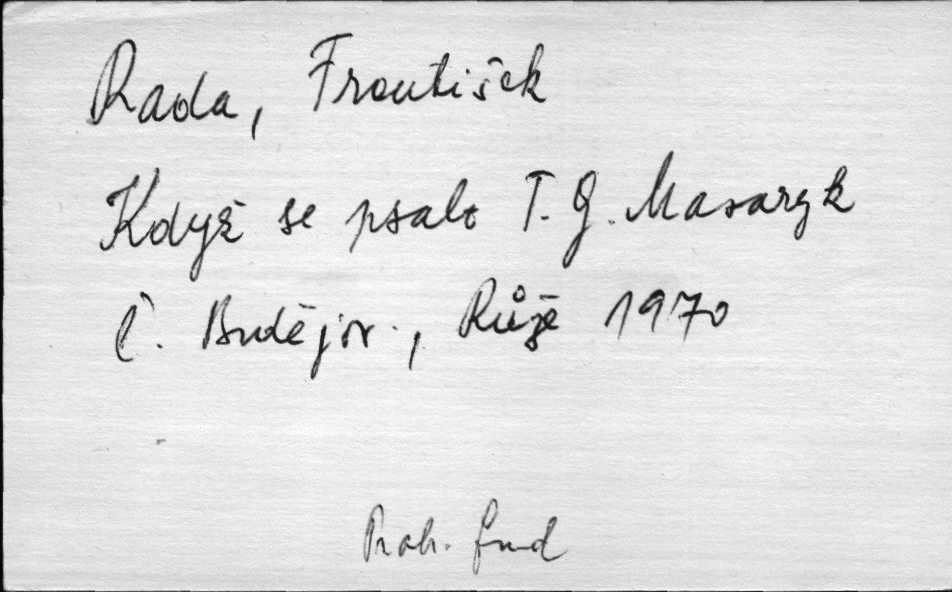 Rada, František
Když se psalo T. G. Masaryk
Č. Budějov., Růže 1970
fond